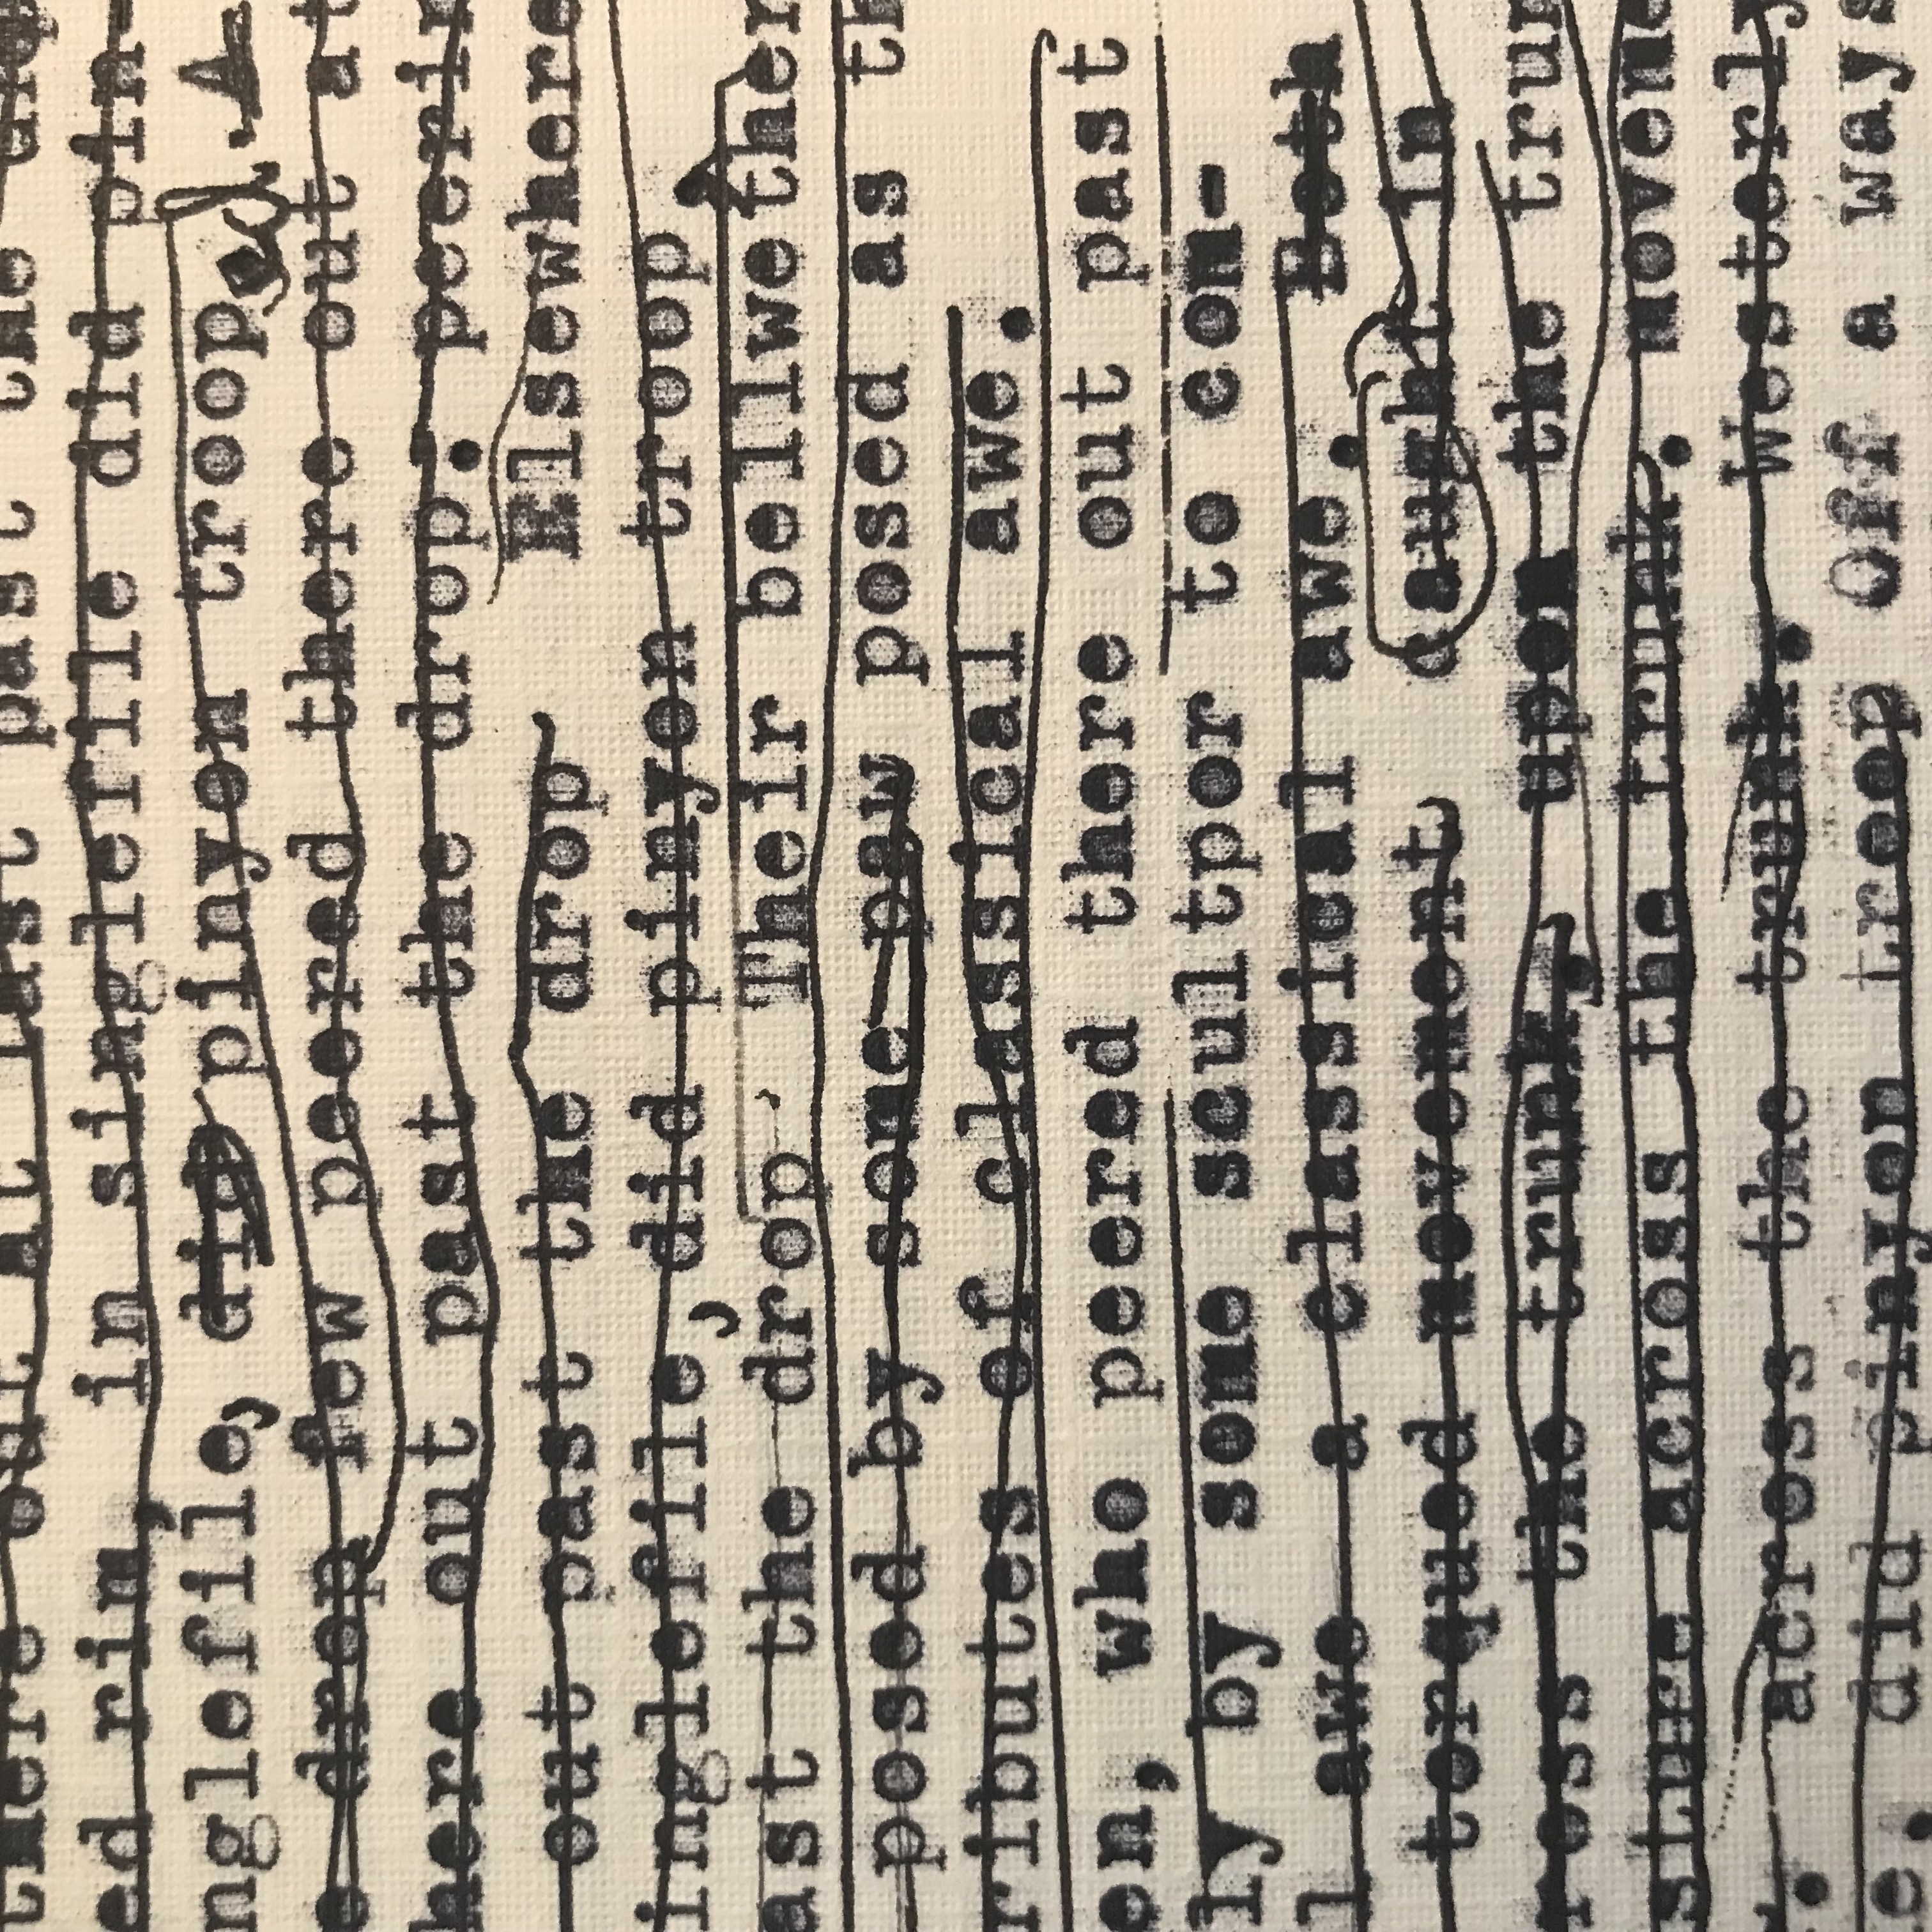 there out at last past the
ed rim, in singlefile did pin-
nglefile, did pinyon trooped. A
e drop few peered there out at
here out past the drop. peerin
out past the drop Elsewhere
inglefile, did pinyon troop
ast the drop Their bellwether
posed by some paw posed as th
ributes of classical awe.
on, who peered there out past
ly by some sculptor to com-
l awe a classical awe. Both
torqued movement caught in
ross the trunk, upon the trun
sture across the trunk. moveme
t. across the trunk. Westerly
e, did pinyon troop Off a ways